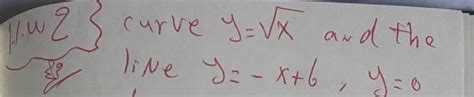 H.W 2 } curve y=√x and the
line y=-x+6, y=0